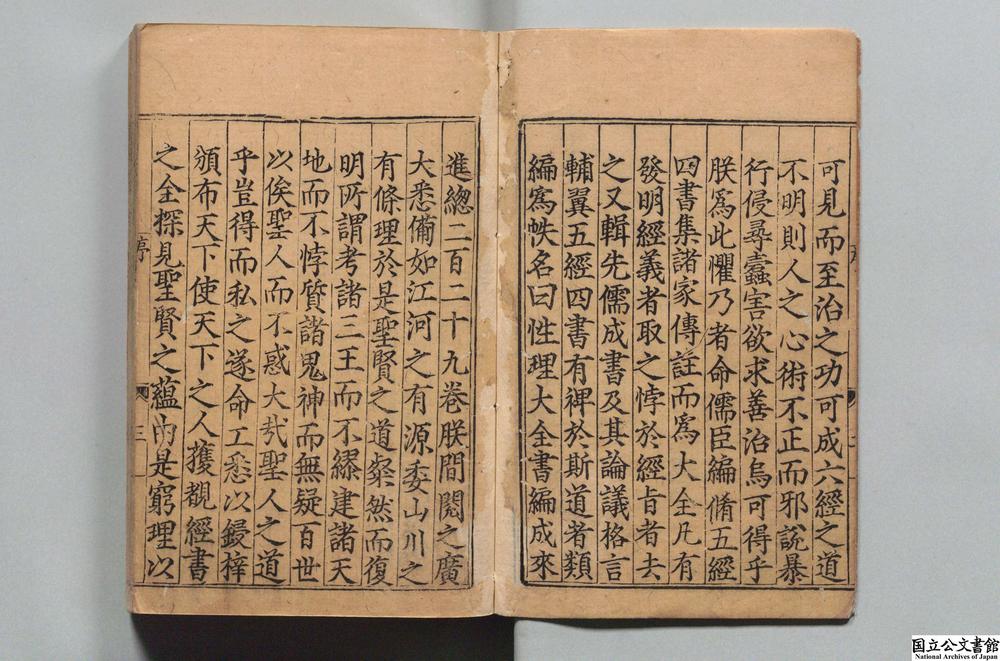 可見而至治之功可成六經之道
不明則人之心術不正而邪說暴
行侵尋蠹害欲求善治烏可得乎
朕爲此懼乃者命儒臣編脩五經
四書集諸家傳註而爲大全凡有
發明經義者取之悖於經旨者去
之又輯先儒成書及其論議格言
輔翼五經四書有裨於斯道者類
編爲帙名曰性理大全書編成來
進緫二百二十九卷朕間閱之廣
大悉備如江河之有源委山川之
有條理於是聖賢之道粲然而復
明所謂考諸三王而不繆建諸天
地而不悖質諸鬼神而無疑百世
以俟聖人而不惑大㢤聖人之道
乎豈得而私之遂命工悉以鋟梓
頒布天下使天下之人獲覩經書
之全探見聖賢之蘊由是窮理以
序
三
国立公文書館
National Archives of Japan